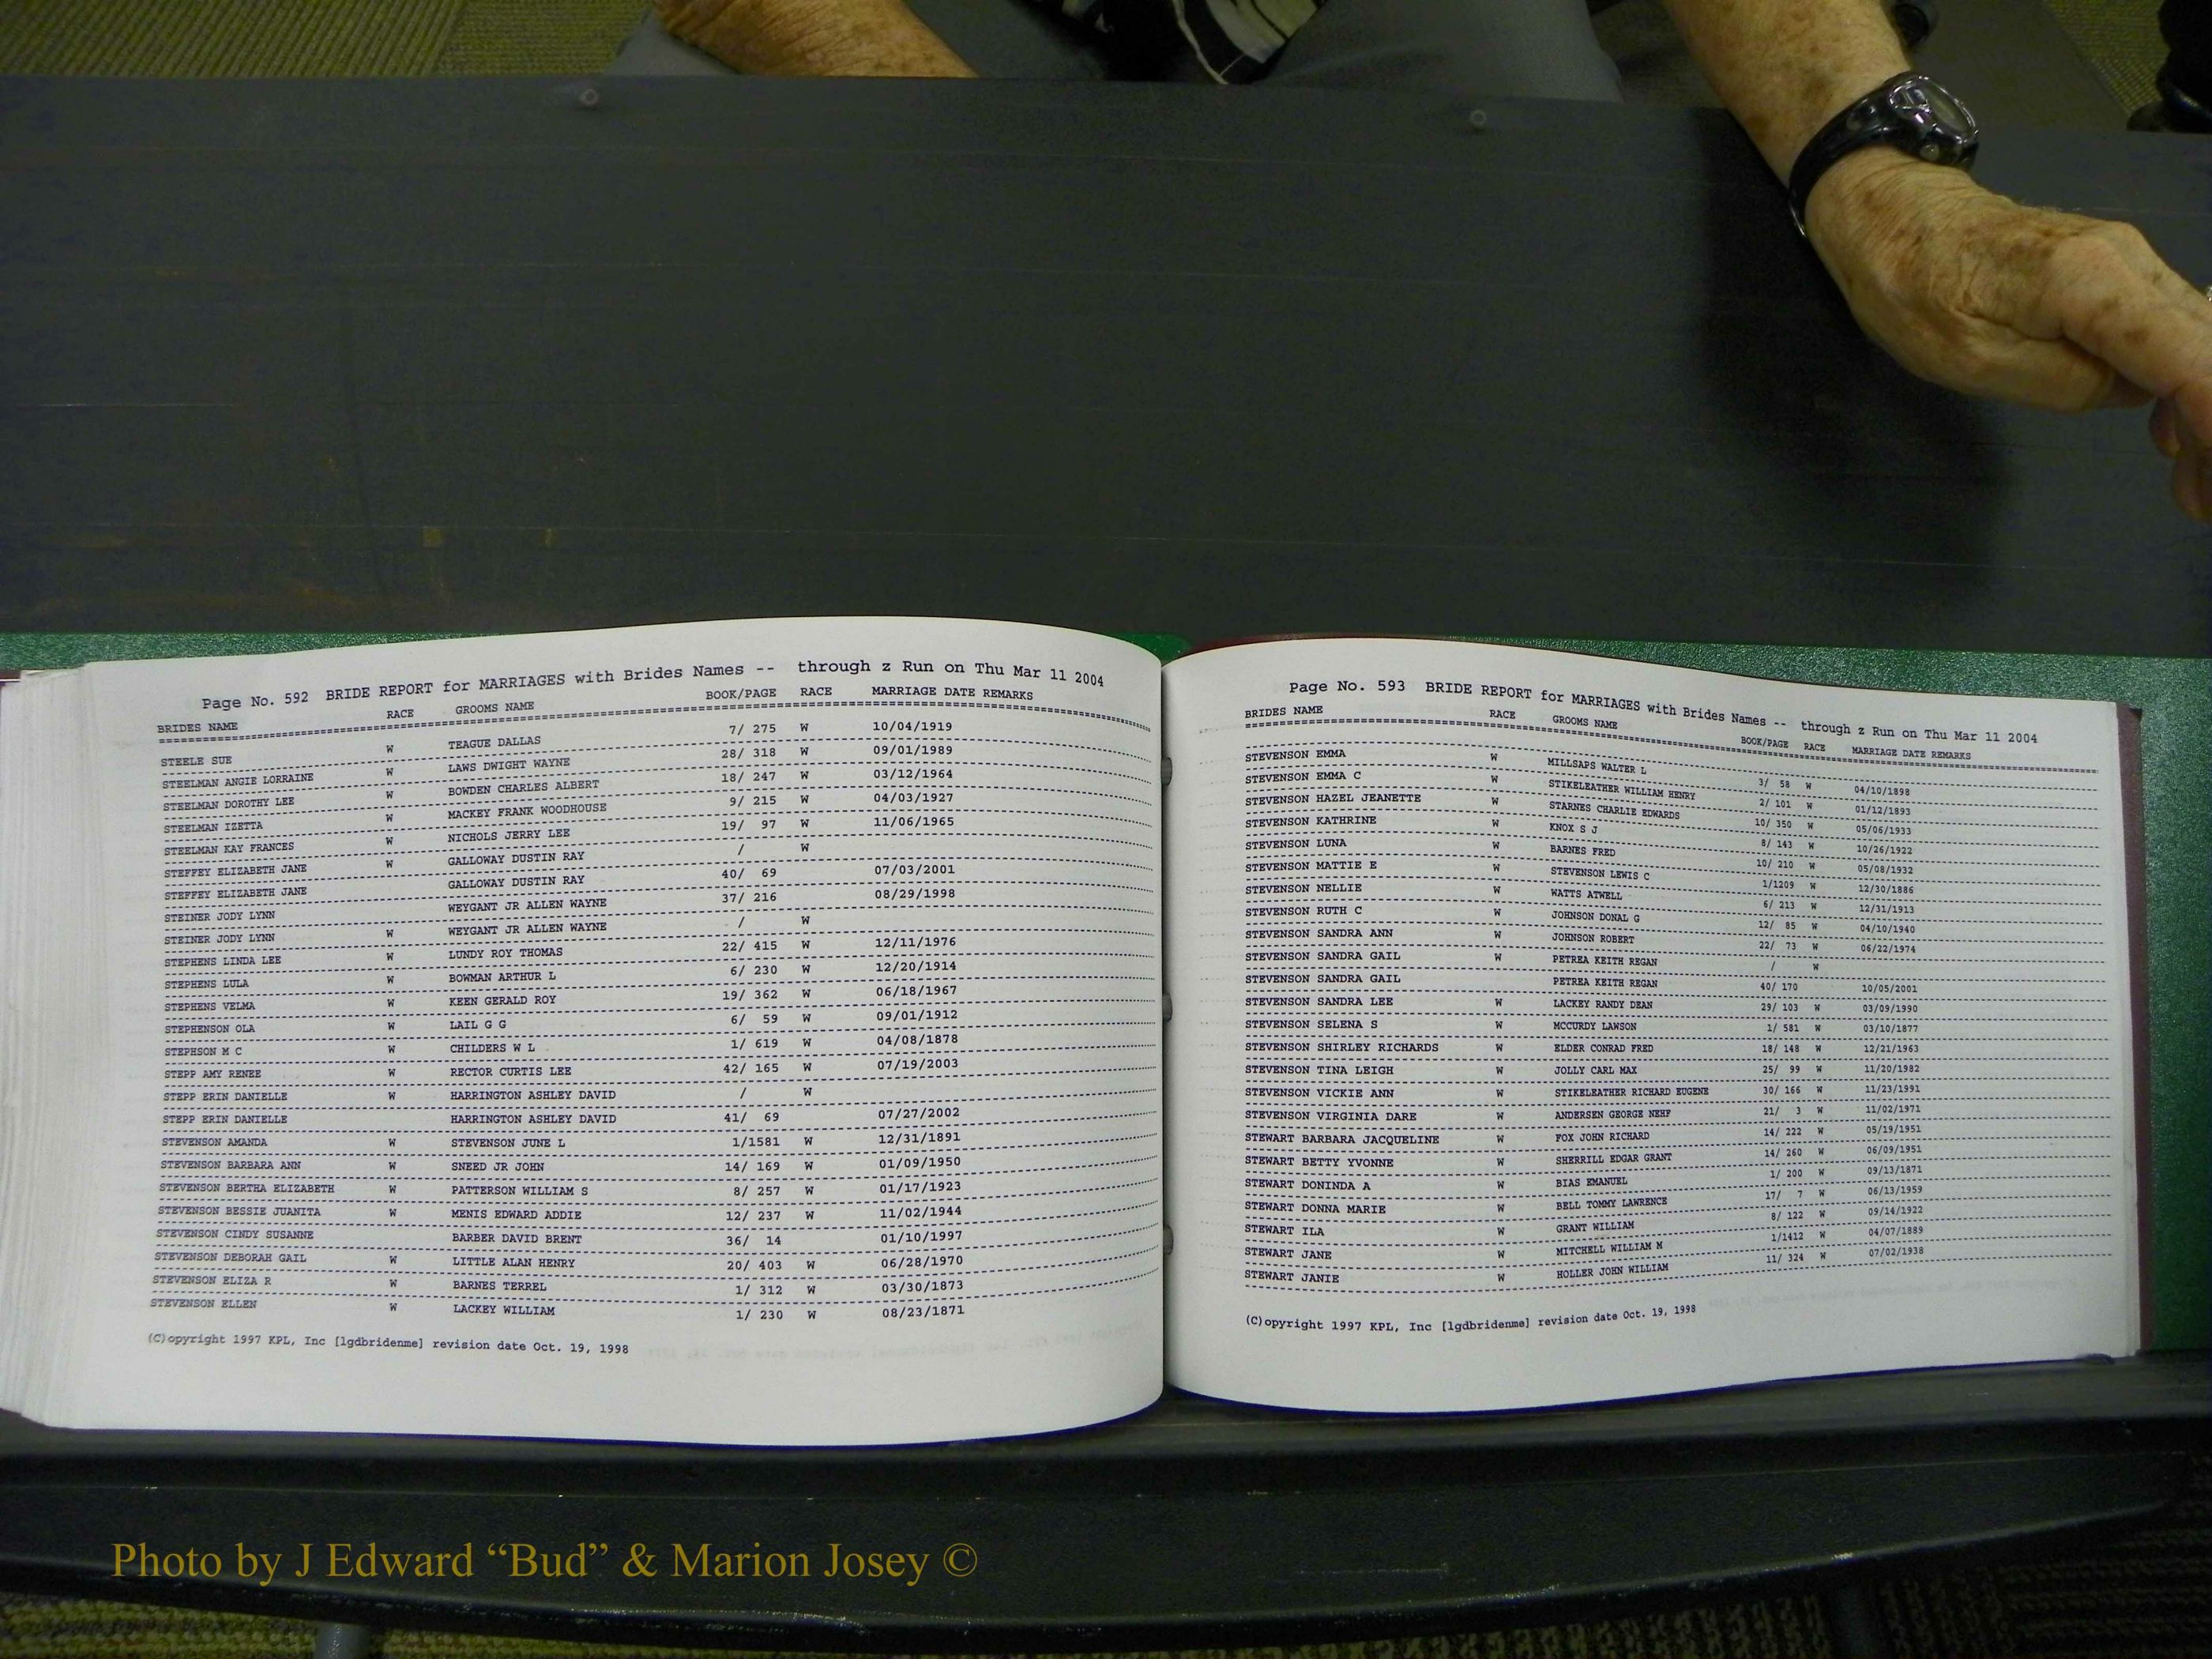 Page No. 592 BRIDE REPORT for MARRIAGES with Brides Names -- through z Run on Thu Mar 11 2004
BRIDES NAME RACE GROOMS NAME BOOK/PAGE RACE MARRIAGE DATE REMARKS
STEELE SUE W TEAGUE DALLAS 7/ 275 W 10/04/1919
STEELMAN ANGIE LORRAINE W LAWS DWIGHT WAYNE 28/ 318 W 09/01/1989
STEELMAN DOROTHY LEE W BOWDEN CHARLES ALBERT 18/ 247 W 03/12/1964
STEELMAN IZETTA W MACKEY FRANK WOODHOUSE 9/ 215 W 04/03/1927
STEELMAN KAY FRANCES W NICHOLS JERRY LEE 19/ 97 W 11/06/1965
STEFFEY ELIZABETH JANE W GALLOWAY DUSTIN RAY / W
STEFFEY ELIZABETH JANE GALLOWAY DUSTIN RAY 40/ 69 07/03/2001
STEINER JODY LYNN WEYGANT JR ALLEN WAYNE 37/ 216 08/29/1998
STEINER JODY LYNN W WEYGANT JR ALLEN WAYNE / W
STEPHENS LINDA LEE W LUNDY ROY THOMAS 22/ 415 W 12/11/1976
STEPHENS LULA W BOWMAN ARTHUR L 6/ 230 W 12/20/1914
STEPHENS VELMA W KEEN GERALD ROY 19/ 362 W 06/18/1967
STEPHENSON OLA W LAIL G G 6/ 59 W 09/01/1912
STEPHSON M C W CHILDERS W L 1/ 619 W 04/08/1878
STEPP AMY RENEE W RECTOR CURTIS LEE 42/ 165 W 07/19/2003
STEPP ERIN DANIELLE W HARRINGTON ASHLEY DAVID / W
STEPP ERIN DANIELLE HARRINGTON ASHLEY DAVID 41/ 69 07/27/2002
STEVENSON AMANDA W STEVENSON JUNE L 1/1581 W 12/31/1891
STEVENSON BARBARA ANN W SNEED JR JOHN 14/ 169 W 01/09/1950
STEVENSON BERTHA ELIZABETH W PATTERSON WILLIAM S 8/ 257 W 01/17/1923
STEVENSON BESSIE JUANITA W MENIS EDWARD ADDIE 12/ 237 W 11/02/1944
STEVENSON CINDY SUSANNE BARBER DAVID BRENT 36/ 14 01/10/1997
STEVENSON DEBORAH GAIL W LITTLE ALAN HENRY 20/ 403 W 06/28/1970
STEVENSON ELIZA R W BARNES TERREL 1/ 312 W 03/30/1873
STEVENSON ELLEN W LACKEY WILLIAM 1/ 230 W 08/23/1871
(C)opyright 1997 KPL, Inc [lgdbridenme] revision date Oct. 19, 1998
Page No. 593 BRIDE REPORT for MARRIAGES with Brides Names -- through z Run on Thu Mar 11 2004
BRIDES NAME RACE GROOMS NAME BOOK/PAGE RACE MARRIAGE DATE REMARKS
STEVENSON EMMA W MILLSAPS WALTER L 3/ 58 W 04/10/1898
STEVENSON EMMA C W STIKELEATHER WILLIAM HENRY 2/ 101 W 01/12/1893
STEVENSON HAZEL JEANETTE W STARNES CHARLIE EDWARDS 10/ 350 W 05/06/1933
STEVENSON KATHRINE W KNOX S J 8/ 143 W 10/26/1922
STEVENSON LUNA W BARNES FRED 10/ 210 W 05/08/1932
STEVENSON MATTIE E W STEVENSON LEWIS C 1/1209 W 12/30/1886
STEVENSON NELLIE W WATTS ATWELL 6/ 213 W 12/31/1913
STEVENSON RUTH C W JOHNSON DONAL G 12/ 85 W 04/10/1940
STEVENSON SANDRA ANN W JOHNSON ROBERT 22/ 73 W 06/22/1974
STEVENSON SANDRA GAIL W PETREA KEITH REGAN / W
STEVENSON SANDRA GAIL PETREA KEITH REGAN 40/ 170 10/05/2001
STEVENSON SANDRA LEE W LACKEY RANDY DEAN 29/ 103 W 03/09/1990
STEVENSON SELENA S W MCCURDY LAWSON 1/ 581 W 03/10/1877
STEVENSON SHIRLEY RICHARDS W ELDER CONRAD FRED 18/ 148 W 12/21/1963
STEVENSON TINA LEIGH W JOLLY CARL MAX 25/ 99 W 11/20/1982
STEVENSON VICKIE ANN W STIKELEATHER RICHARD EUGENE 30/ 166 W 11/23/1991
STEVENSON VIRGINIA DARE W ANDERSEN GEORGE NEHF 21/ 3 W 11/02/1971
STEWART BARBARA JACQUELINE W FOX JOHN RICHARD 14/ 222 W 05/19/1951
STEWART BETTY YVONNE W SHERRILL EDGAR GRANT 14/ 260 W 06/09/1951
STEWART DONINDA A W BIAS EMANUEL 1/ 200 W 09/13/1871
STEWART DONNA MARIE W BELL TOMMY LAWRENCE 17/ 7 W 06/13/1959
STEWART ILA W GRANT WILLIAM 8/ 122 W 09/14/1922
STEWART JANE W MITCHELL WILLIAM M 1/1412 W 04/07/1889
STEWART JANIE W HOLLER JOHN WILLIAM 11/ 324 W 07/02/1938
(C)opyright 1997 KPL, Inc [lgdbridenme] revision date Oct. 19, 1998
Photo by J Edward “Bud” & Marion Josey ©